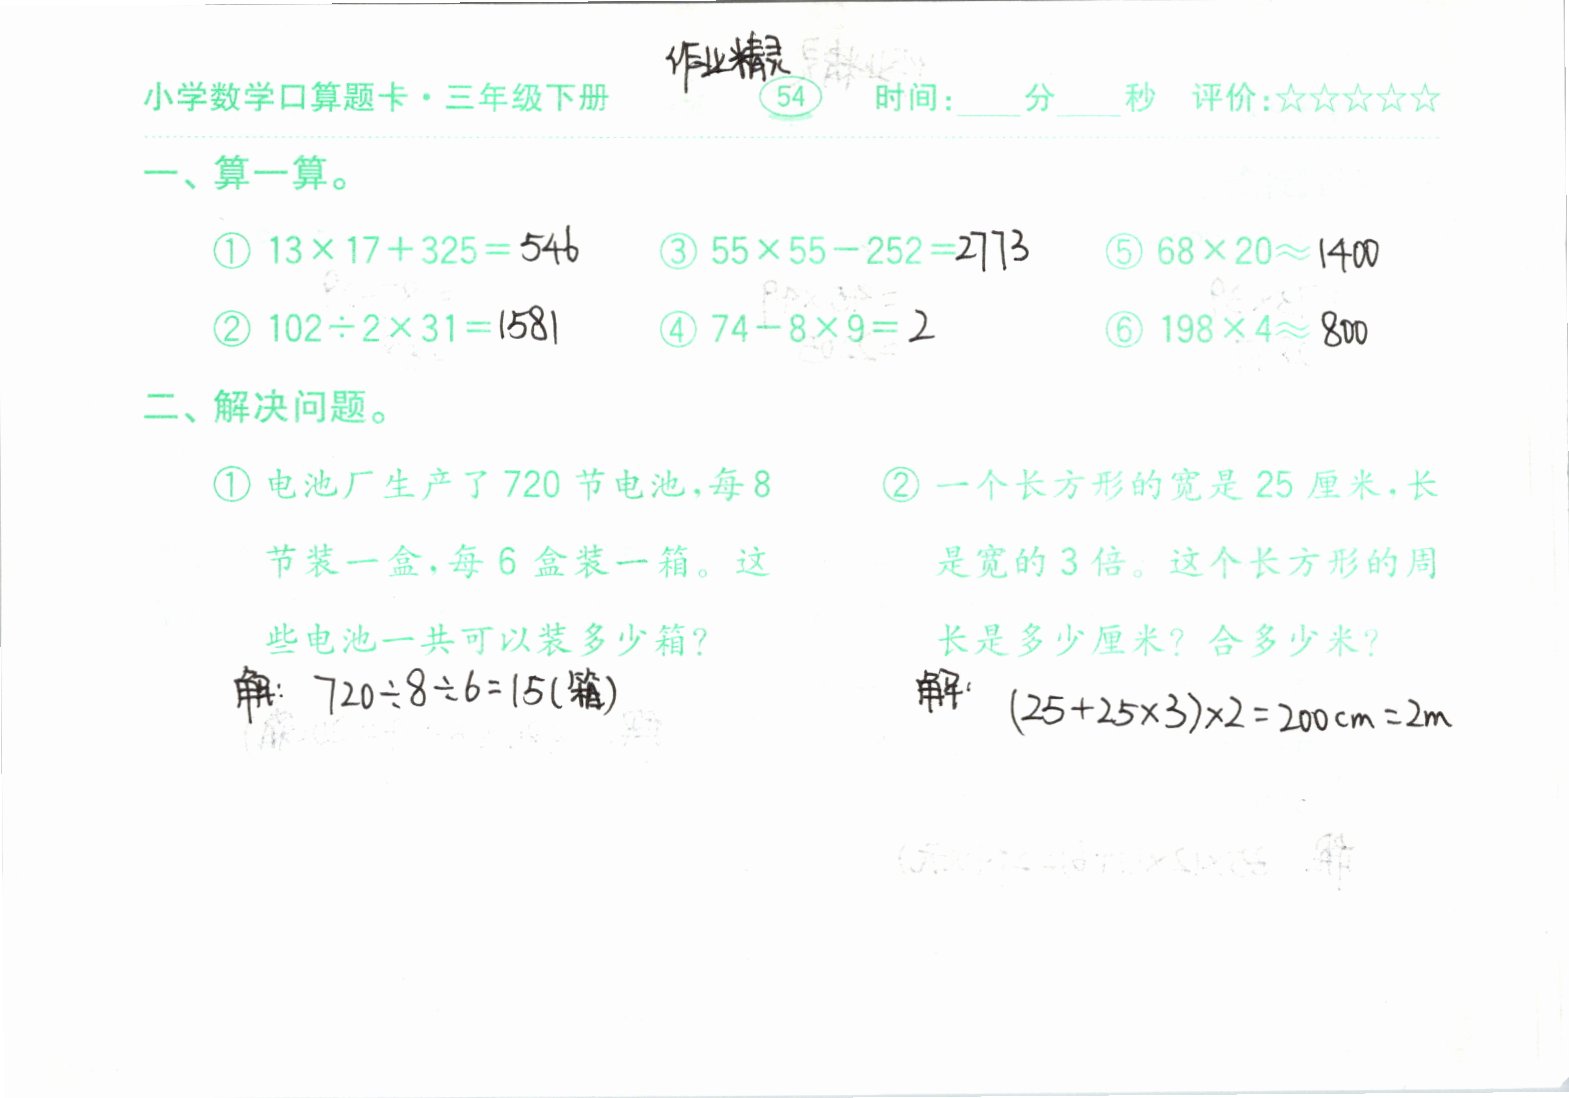 作业精灵
小学数学口算题卡·三年级下册 54 时间:____分____秒 评价:☆☆☆☆☆
一、算一算。
① 13×17+325=546 ③ 55×55-252=2773 ⑤ 68×20≈1400
② 102÷2×31=1581 ④ 74-8×9=2 ⑥ 198×4≈800
二、解决问题。
① 电池厂生产了 720 节电池,每 8
节装一盒,每 6 盒装一箱。这
些电池一共可以装多少箱?
解: 720÷8÷6=15(箱)
② 一个长方形的宽是 25 厘米,长
是宽的 3 倍。这个长方形的周
长是多少厘米? 合多少米?
解: (25+25×3)×2=200cm=2m